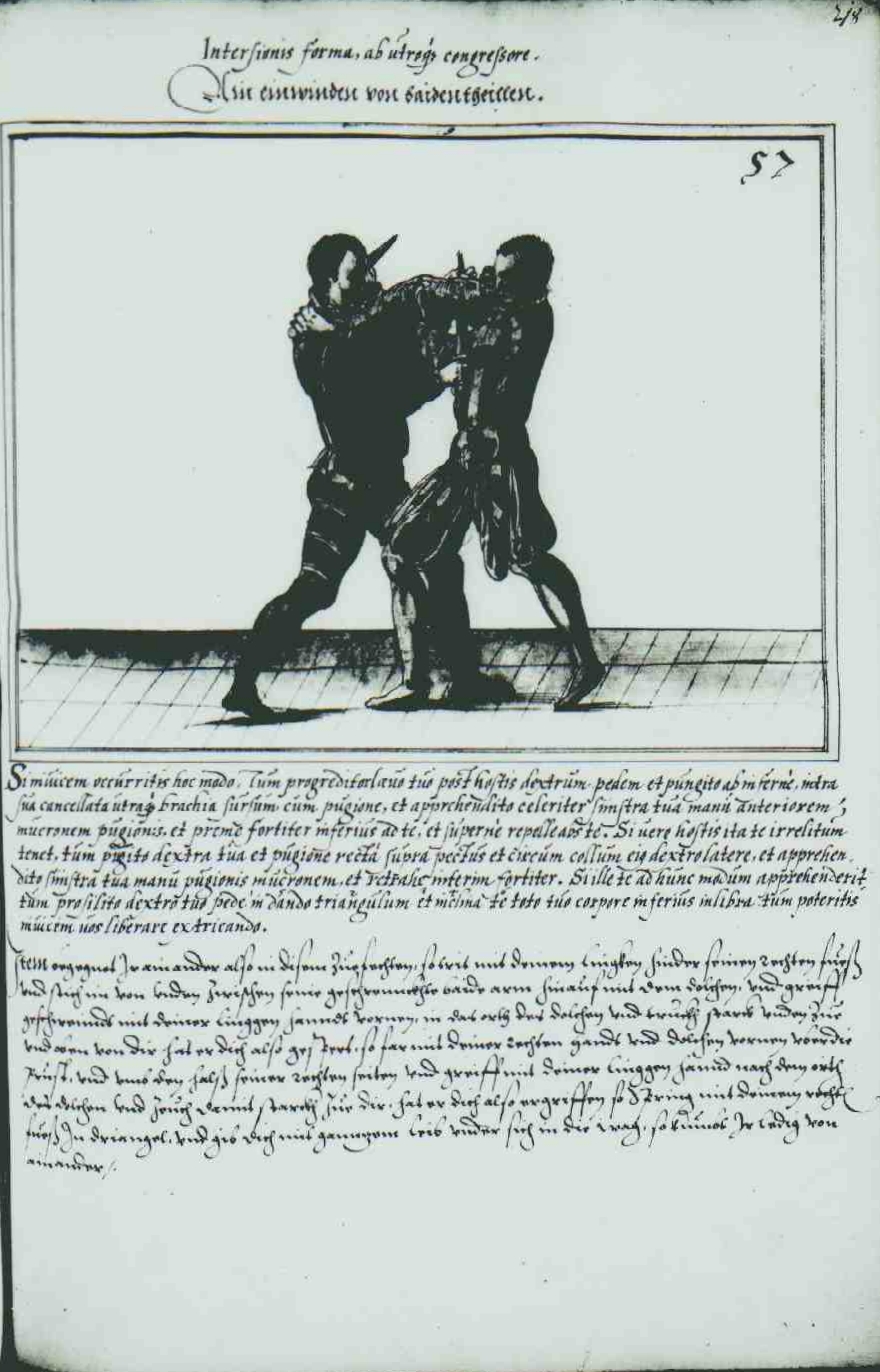 218
Intersionis forma, ab utroqꝫ congressore.
Ain einwinden von baidentheillen.
57
Si inuicem occurritis hoc modo, Tum progreditor laeuo tuo post hostis dextrum pedem et pungito ab inferne, intra
sua cancellata utraqꝫ brachia sursum cum pugione, et apprehendito celeriter sinistra tua manu anteriorem
mucronem pugionis, et preme fortiter inferius ad te, et superne repelle abs te. Si uero hostis ita te irrelitum
tenet, tum pugito dextra tua et pugione recta supra pectus et circum collum eiꝫ dextro latere, et apprehen,
dito sinistra tua manu pugionis mucronem, et retrahe interim fortiter. Si ille te ad hunc modum apprehenderit
tum prosilito dextro tuo pede in dando triangulum et inclina te toto tuo corpore inferius in libra tum poteritis
inuicem uos liberare extricando.
Item begegnet Ir ainander also in disem Zuefechten, so trit mit deinem linggken hinder seinen rechten fuess
vnd stich im von vnden zwischen seine geschrenncktte baide arm hinauf mit dem dolchen, vnd greiff
geschwinds mit deiner linggen hanndt vornen, in das orth des dolchen vnd truckh starckh vnden zue
vnd oben von dir hat er dich also gesperrt, so far mit deiner rechten handt vnd dolchen vornen vber die
Prust, vnd vmb den halss seiner rechten seiten vnd greiff mit deiner linggen hannd nach dem orth
des dolchen vnd Zeuch damit starckh zue dir, hat er dich also ergriffen so Spring mit deinem rechten
fuess In driangel, vnd gib dich mit ganngem leib vnder sich in die wag, so kumbt Ir ledig von
ainander